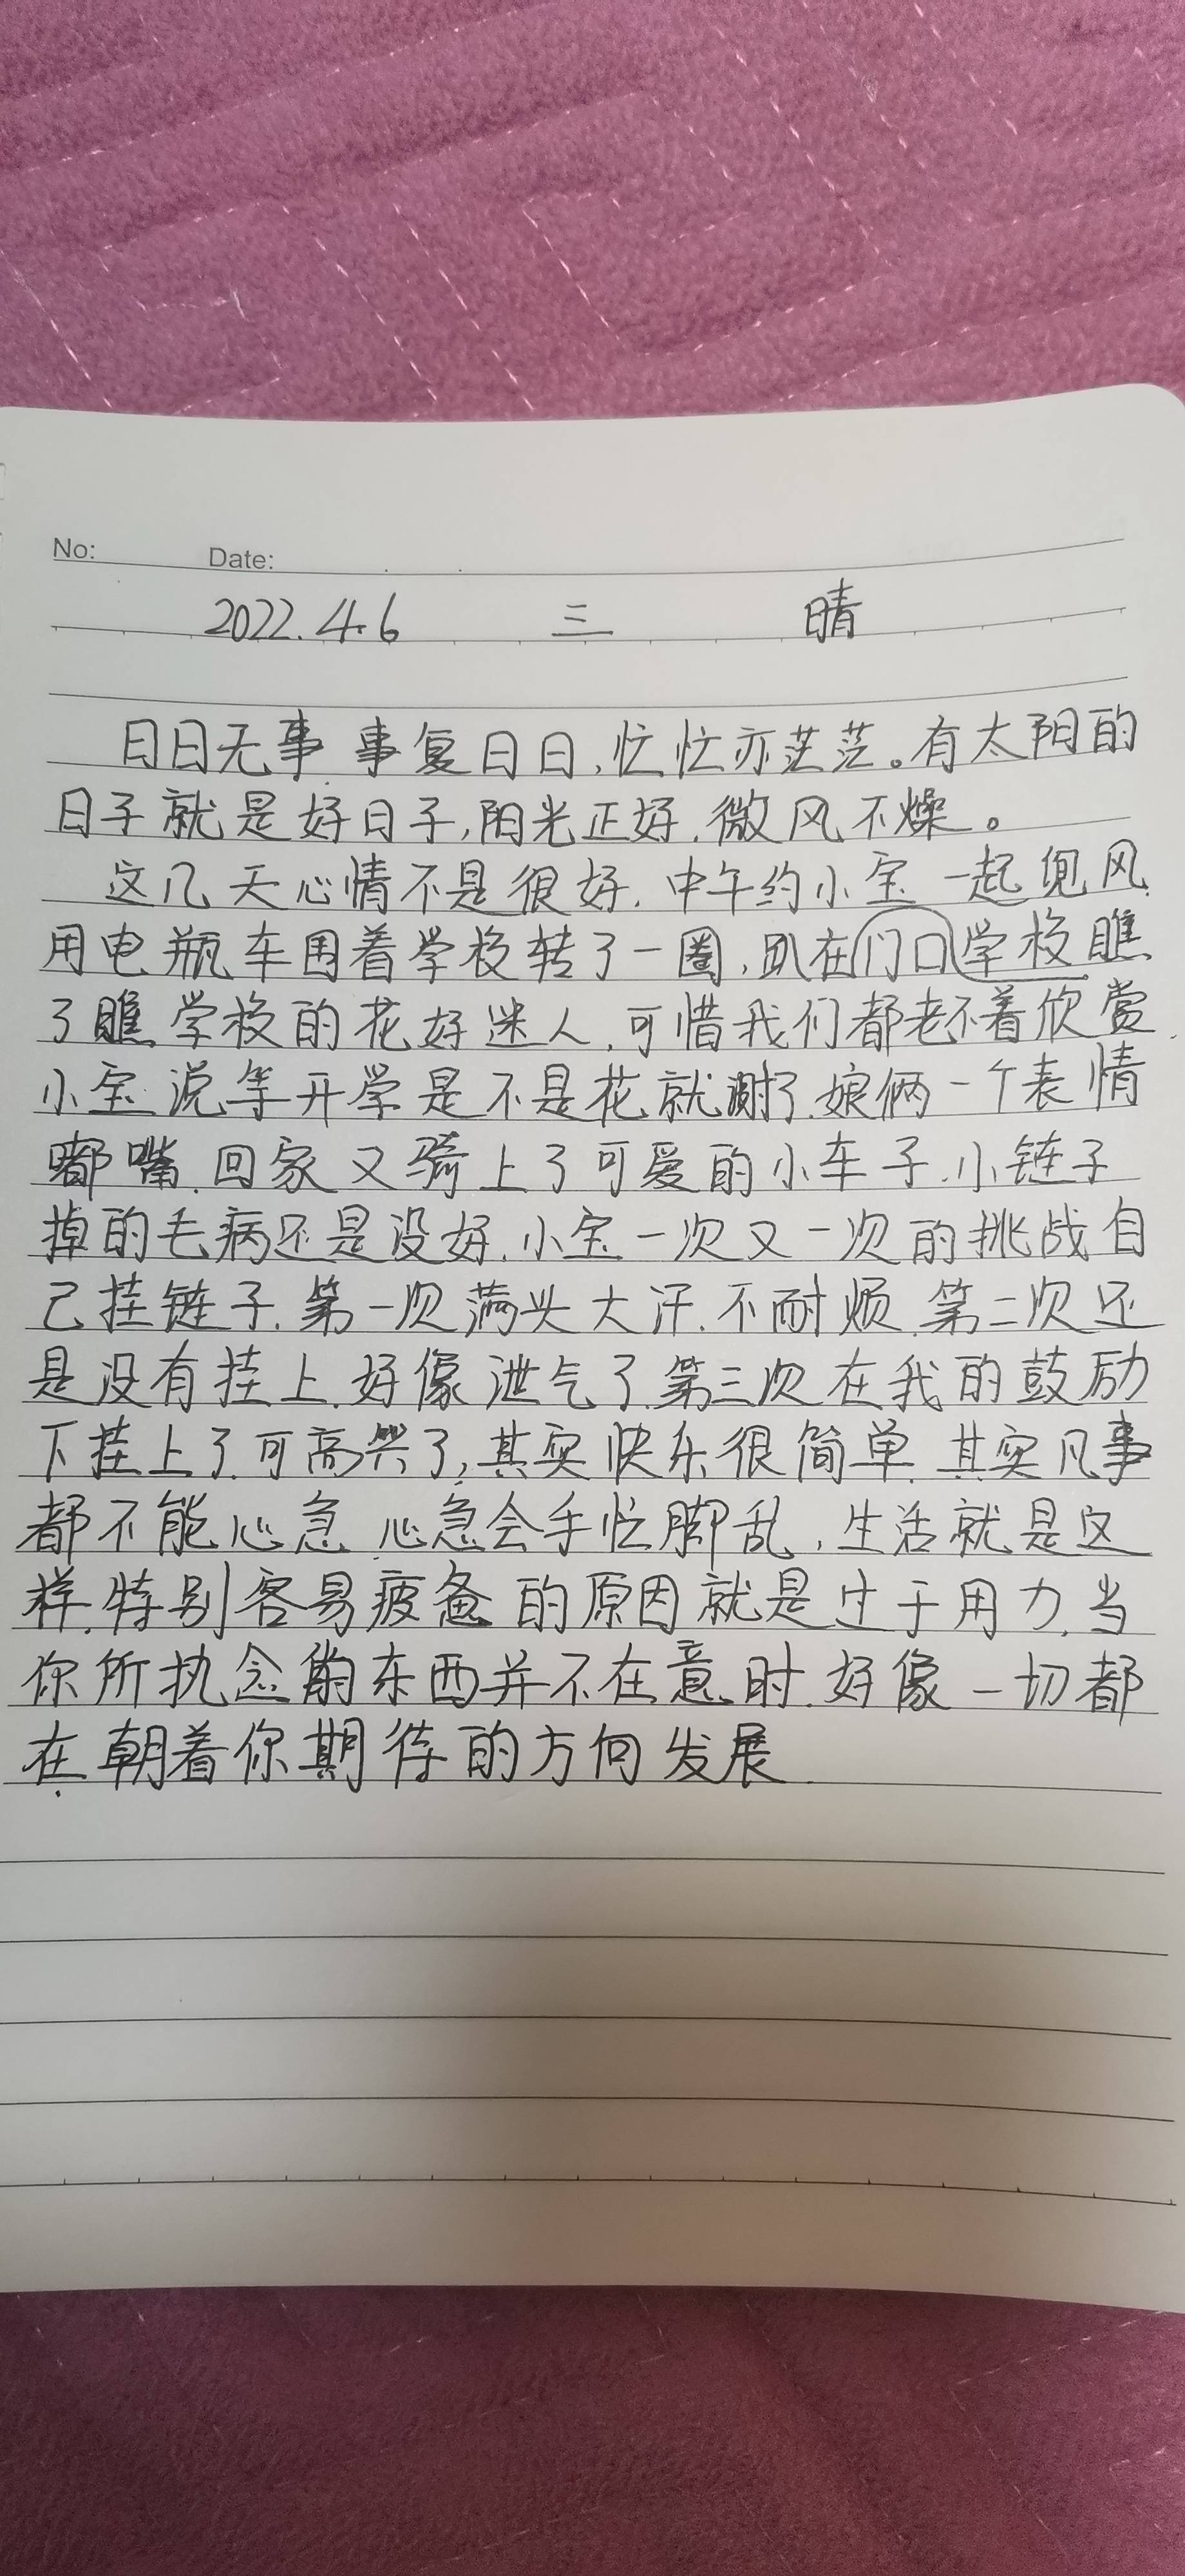 No:
Date:
2022.4.6 三 晴
日日无事.事复日日,忙忙亦茫茫。有太阳的
日子就是好日子,阳光正好.微风不燥。
这几天心情不是很好.中午约小宝一起兜风.
用电瓶车围着学校转了一圈,趴在门口学校瞧
了瞧.学校的花好迷人,可惜我们都老不着欣赏.
小宝说等开学是不是花就谢了.娘俩一个表情
嘟嘴.回家又骑上了可爱的小车子.小链子
掉的毛病还是没好.小宝一次又一次的挑战自
己挂链子.第一次满头大汗.不耐烦.第二次还
是没有挂上.好像泄气了.第三次在我的鼓励
下挂上了.可高兴了,其实快乐很简单.其实凡事
都不能心急.心急会手忙脚乱,生活就是这
样.特别容易疲惫的原因就是过于用力.当
你所执念的东西并不在意时.好像一切都
在朝着你期待的方向发展.